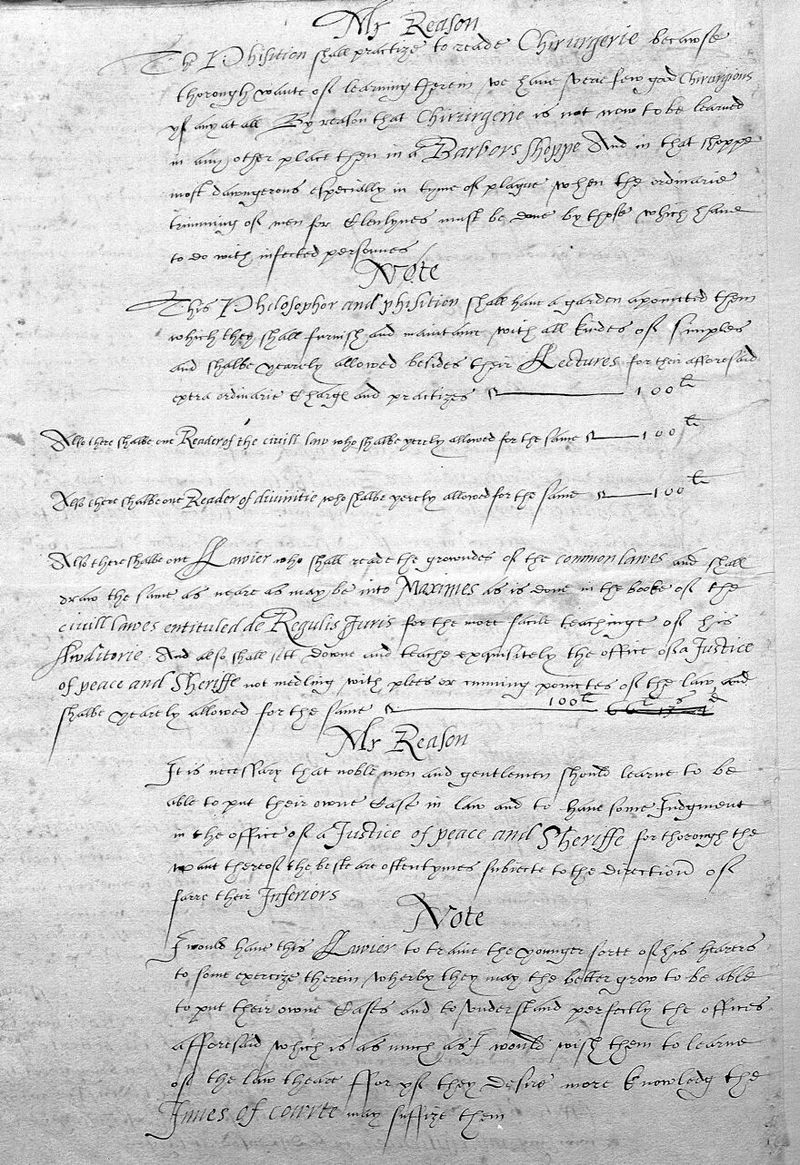 Mr Reason
The Phisition shall practize to reade Chirurgerie becawse
thorough wante of learning therein we have verie few good Chirurgions
yf any at all By reason that Chirurgerie is not now to be learned
in any other place then in a Barbors shoppe And in that shoppe
most dawngerous especially in tyme of plague when the ordinarie
trimming of men for clenlynes must be done by those which have
to do with infected personnes
Note
This Philosophor and phisition shall have a garden apointed them
which they shall furnish and maintaine with all kindes of simples
and shalbe yearely allowed besides their Lectures for their afforesaid
extra ordinarie charge and practizes 100li
Also there shalbe one Reader of the civill law who shalbe yerely allowed for the same 100li
Also there shalbe one Reader of divinitie who shalbe yerely allowed for the same 100li
Also there shalbe one Lawier who shall reade the growndes of the common lawes and shall
draw the same as neare as may be into Maximes as is done in the booke of the
civill lawes entituled de Regulis Juris for the more facile teachinge of his
Awditorie And also shall sett downe and teache exquisitely the office of a Justice
of peace and Sheriffe not medling with plees or cunning pointes of the law and
shalbe yearely allowed for the same 100li
Mr Reason
It is necessary that noble men and gentlemen should learne to be
able to put their owne case in law and to have some Judgment
in the office of a Justice of peace and Sheriffe for thorough the
want thereof the beste are oftentymes subiecte to the direction of
farre their Inferiors
Note
I would have this Lawier to traine the younger sorte of his hearers
to some exercize therein wherby they may the better grow to be able
to put their owne cases and to understand perfectly the offices
afforesaid which is as much as I would wish them to learne
of the law theare ffor yf they desire more knowledg the
Innes of courte may suffize them